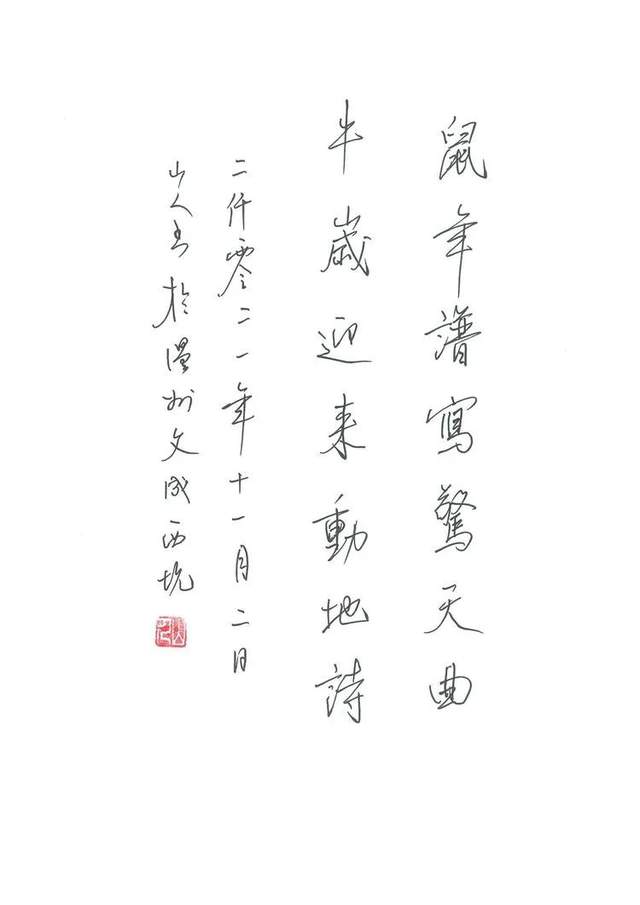 鼠年譜寫驚天曲
牛歲迎来動地詩
二仟零二一年十一月二日
山人书於温州文成西坑